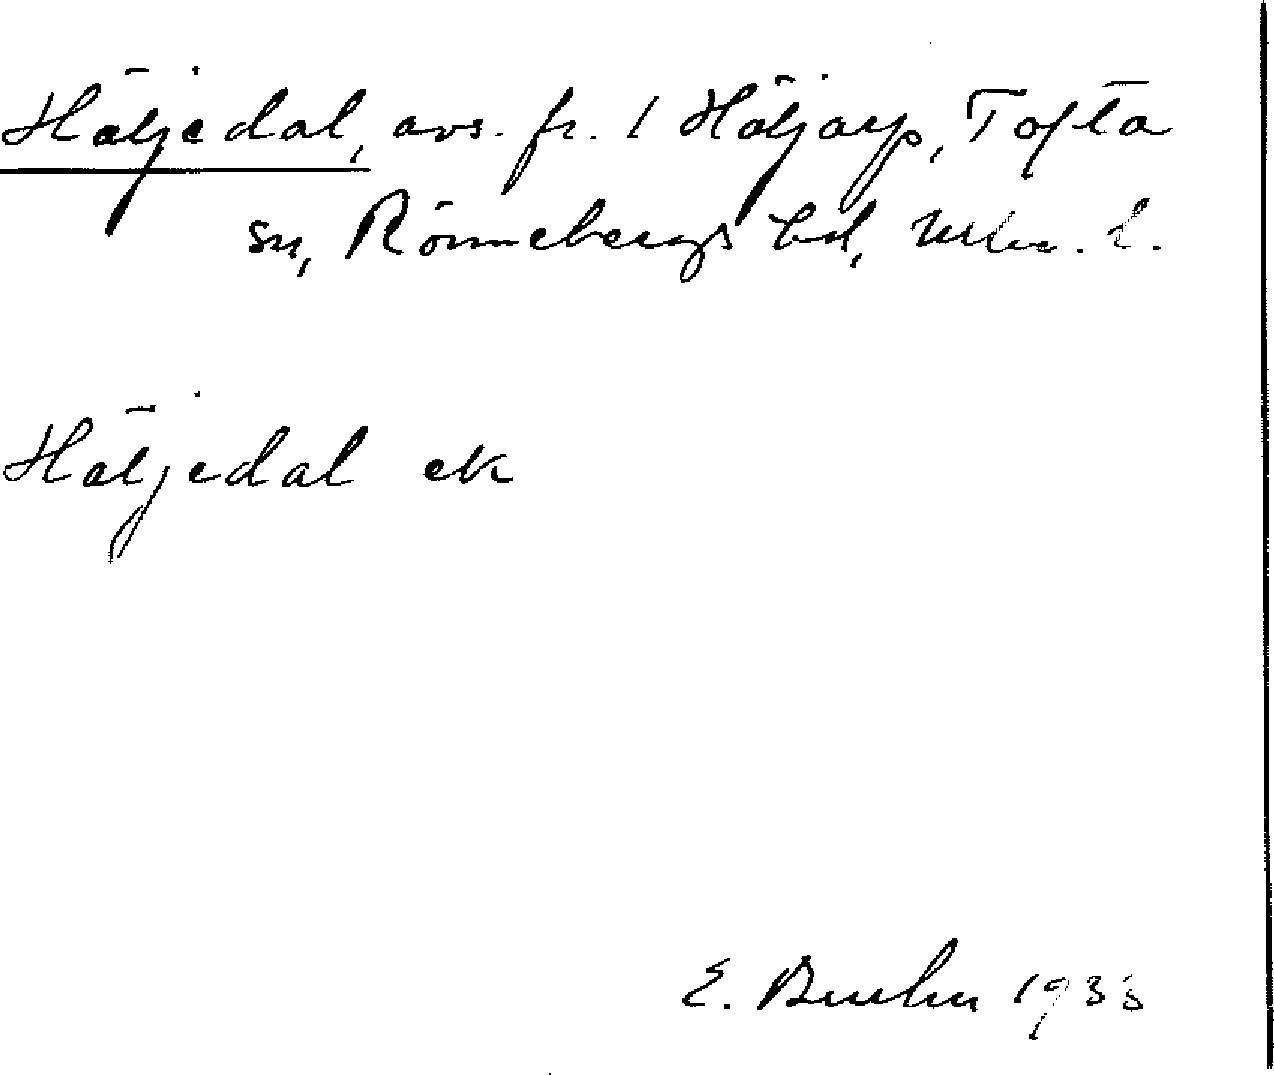 Häljedal, avs. fr. 1 Häljarp, Tofta
sn, Rönnebergs hd, Mlm. l.
Häljedal ek
E. 1933